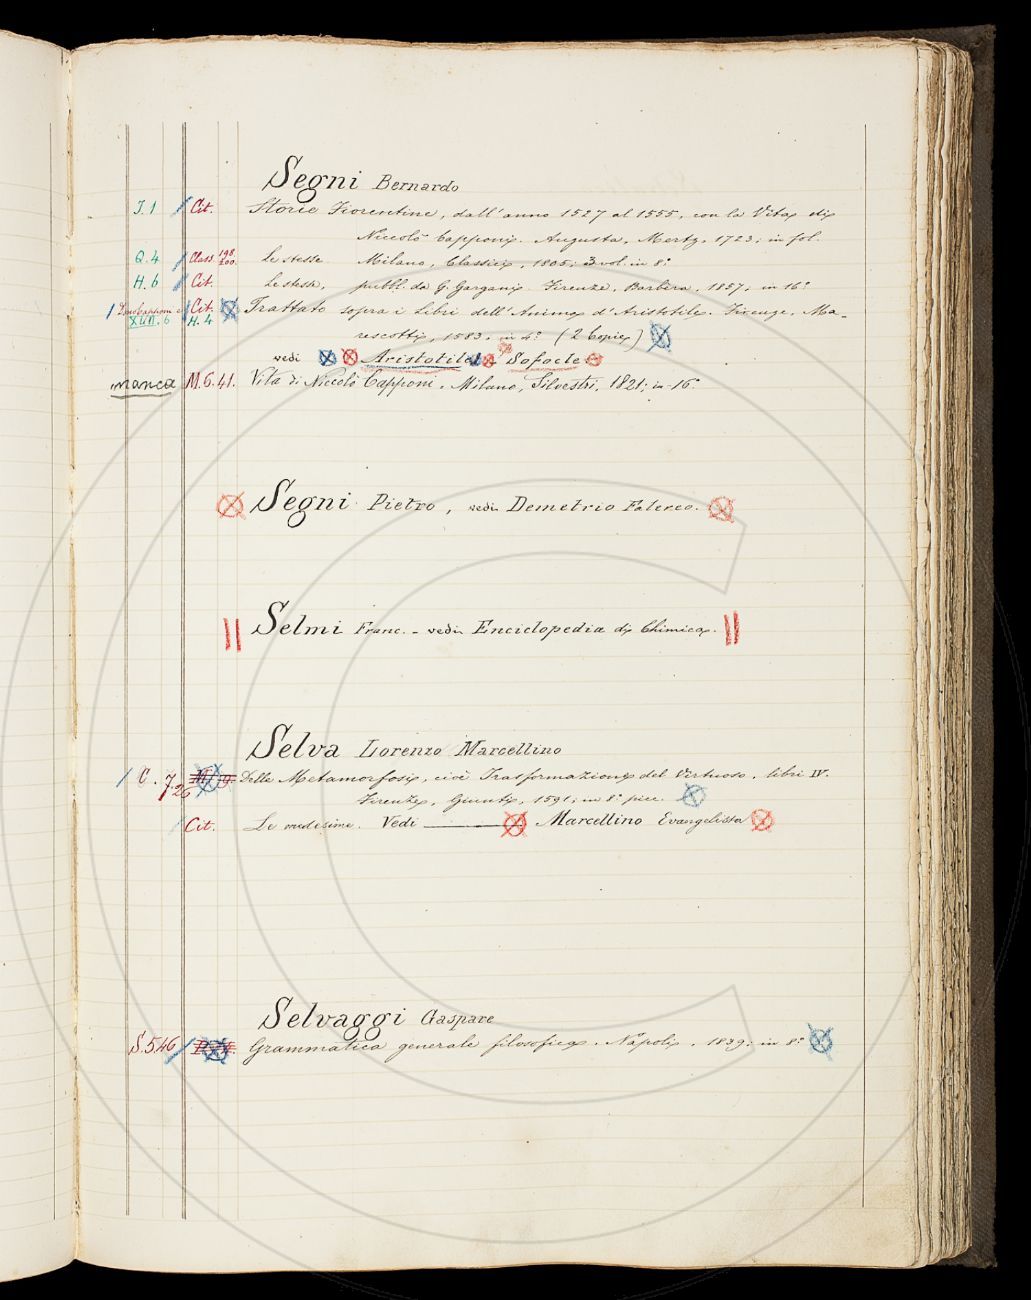 Segni Bernardo
I. 1 Cit. Storie Fiorentine, dall'anno 1527 al 1555, con la Vita di
Niccolò Capponi. Augusta, Mertz, 1723; in fol.
Q. 4 Class. 198. 200. Le stesse Milano, Classici, 1805; 3 vol. in 8°
H. 6 Cit. Le stesse, pubbl. da G. Gargani. Firenze, Barbèra, 1857; in 16°
Cit. Trattato sopra i Libri dell'Anima d'Aristotile. Firenze, Ma-
XVII. 6 H. 4 rescotti, 1583, in 4° (2 Copie)
vedi Aristotile Sofocle
manca M. 6. 41. Vita di Niccolò Capponi. Milano, Silvestri, 1821; in 16°
Segni Pietro, vedi Demetrio Falereo.
Selmi Franc. - vedi Enciclopedia di Chimica.
Selva Lorenzo Marcellino
C. 7. 26 Delle Metamorfosi, cioè Trasformazioni del Virtuoso, libri IV.
Firenze, Giunti, 1591; in 8° picc.
Cit. Le medesime. Vedi Marcellino Evangelista
Selvaggi Gaspare
S. 5. 46 Grammatica generale filosofica. Napoli, 1839; in 8°